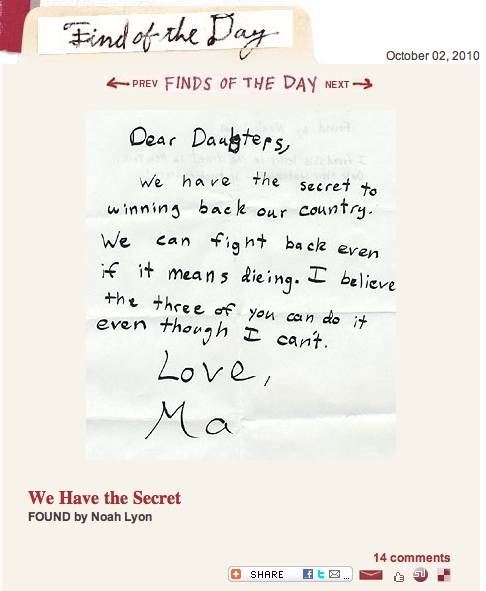 Find of the Day
October 02, 2010
PREV FINDS OF THE DAY NEXT
Dear Daugters,
We have the secret to
winning back our country.
We can fight back even
if it means dieing. I believe
the three of you can do it
even though I can't.
Love,
Ma
We Have the Secret
FOUND by Noah Lyon
14 comments
SHARE